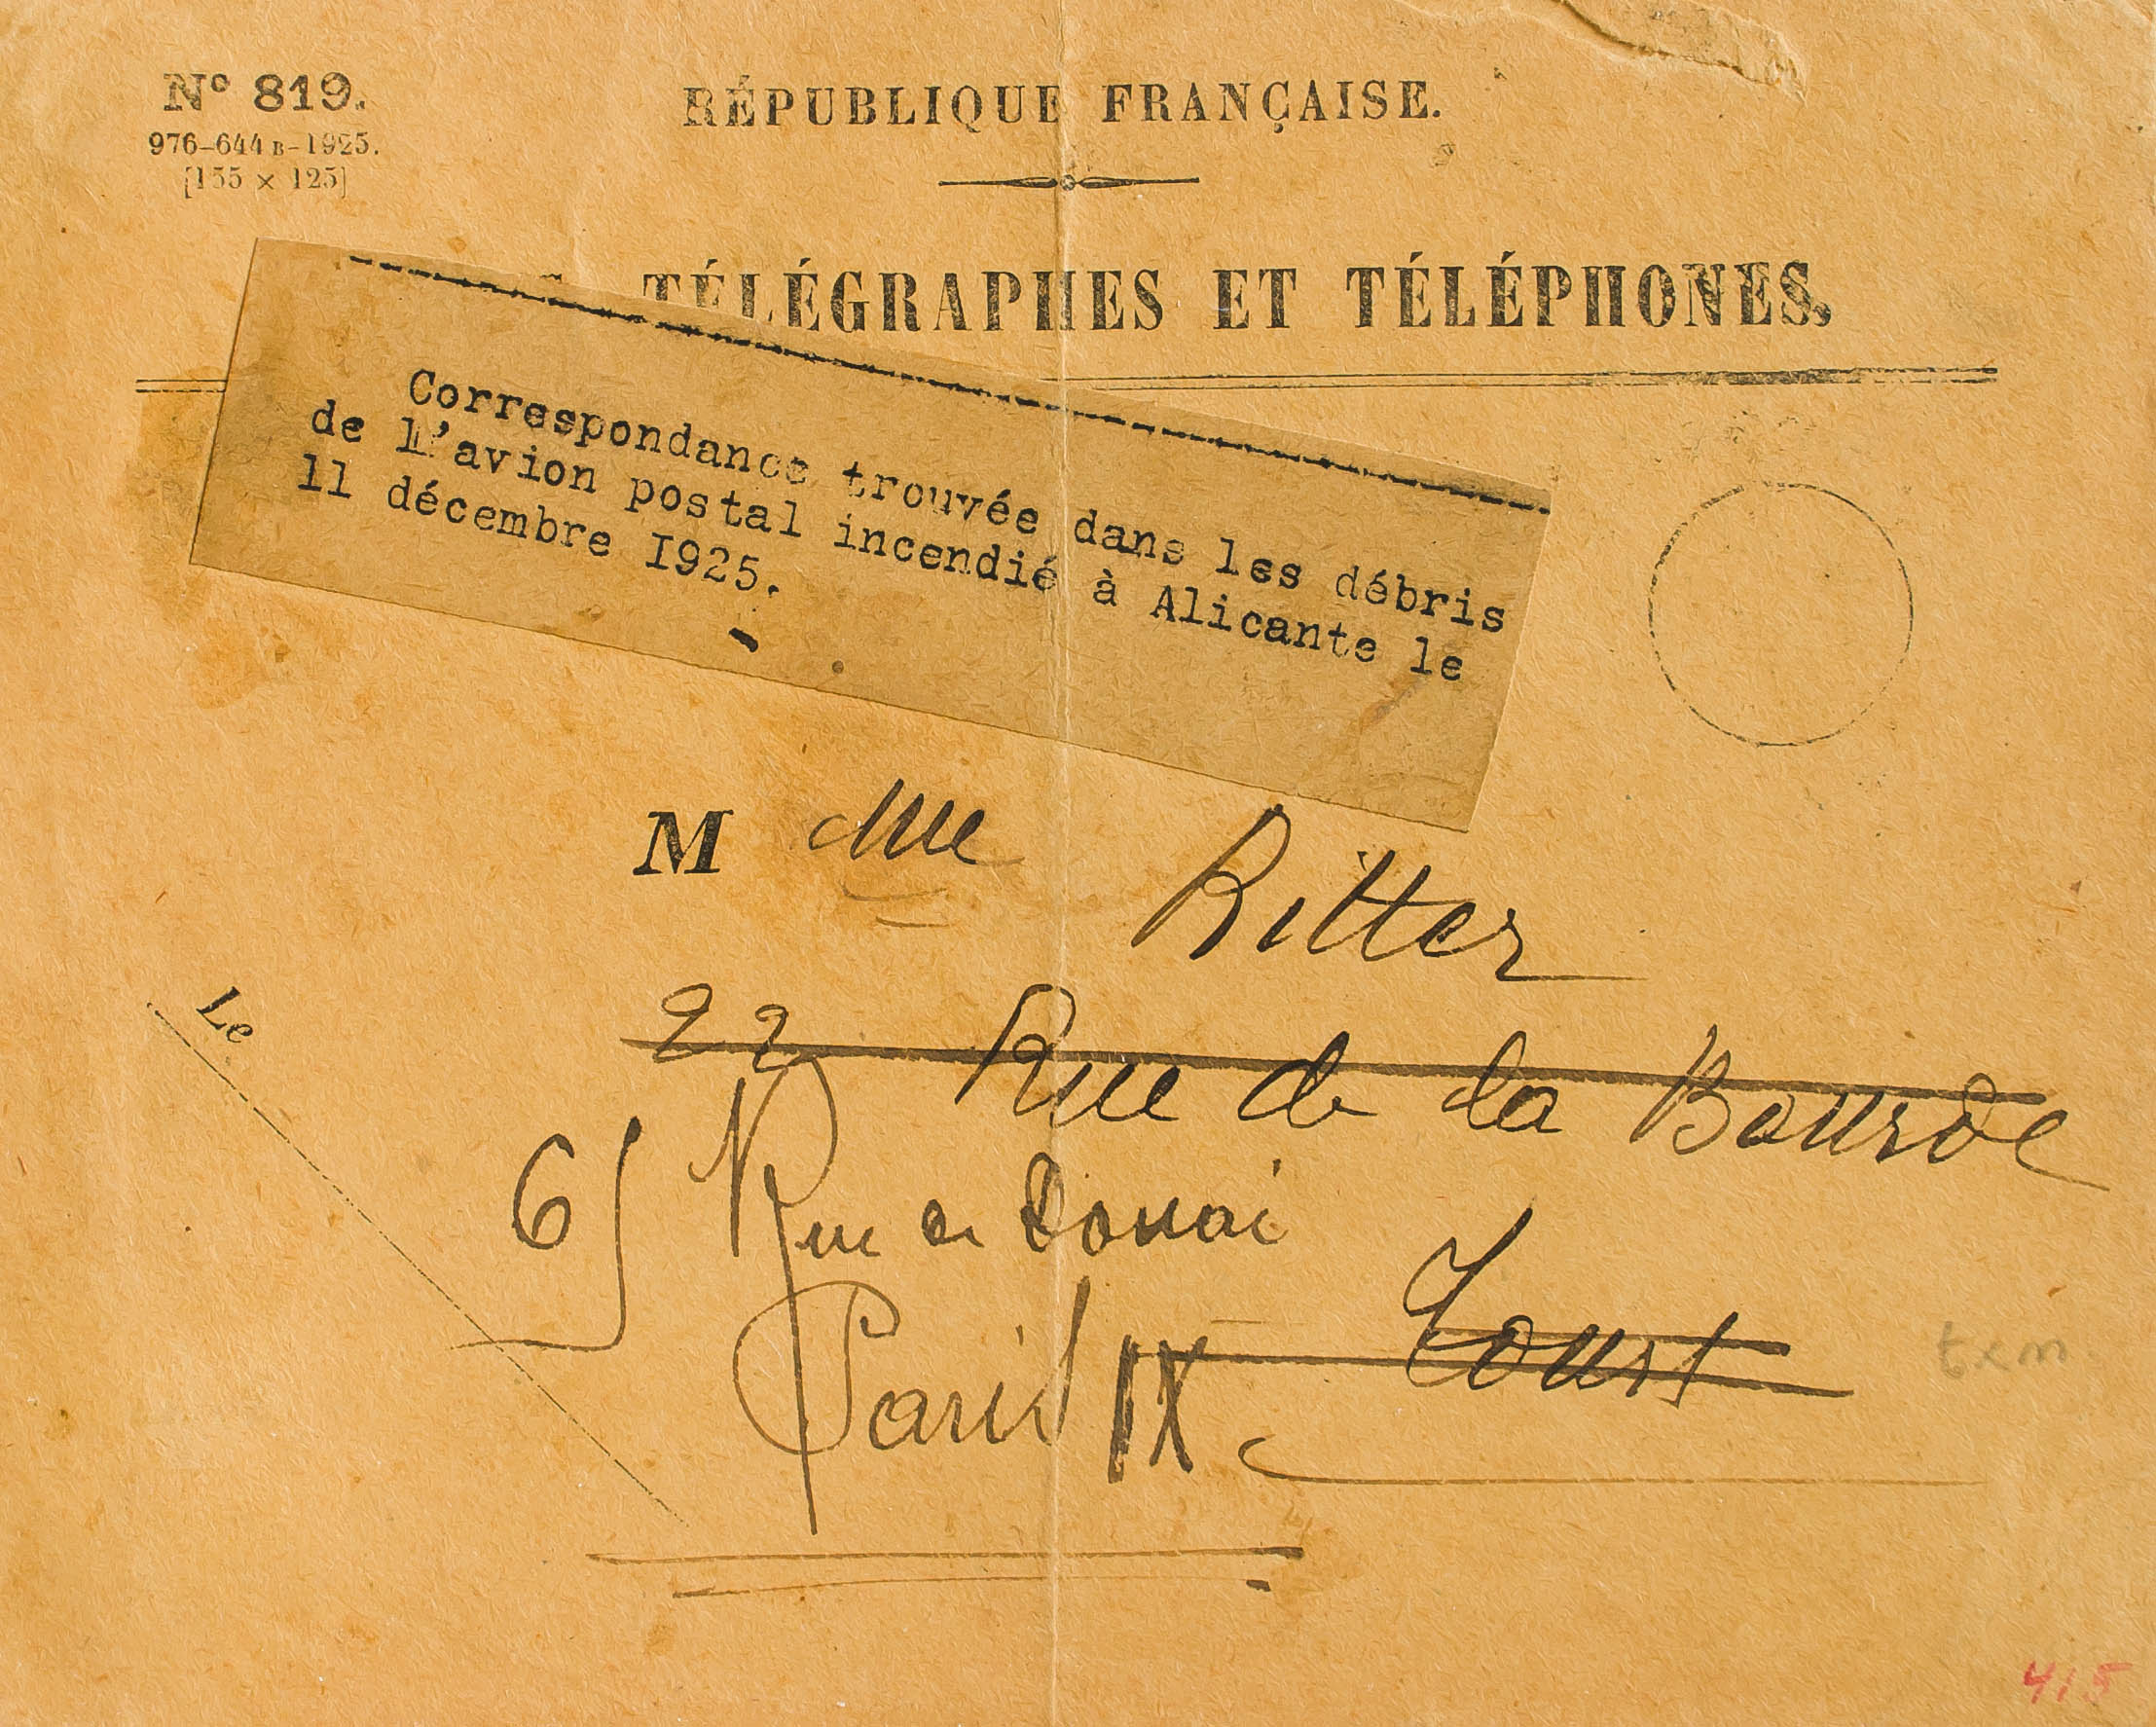 N° 819.
976-644 B-1925.
[155 × 125]
RÉPUBLIQUE FRANÇAISE.
TÉLÉGRAPHES ET TÉLÉPHONES.
Correspondance trouvée dans les débris
de l'avion postal incendié à Alicante le
11 décembre 1925.
M Mlle Ritter
22 Rue de la Bourde
Le
65 Rue de Douai
Tours
Paris IX
415